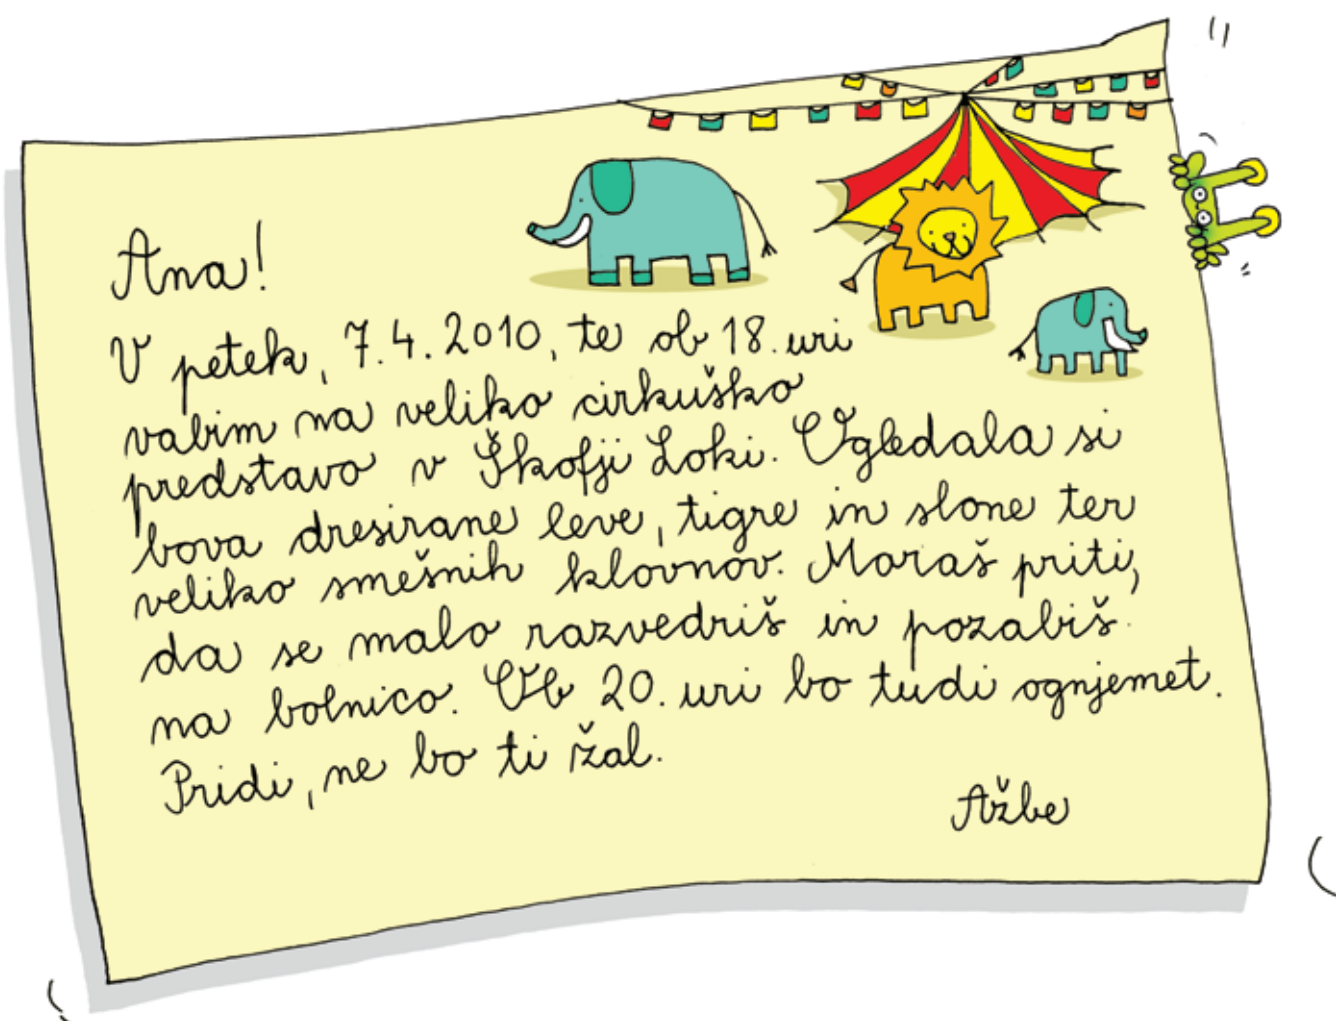 Ana!
V petek, 7.4.2010, te ob 18. uri
vabim na veliko cirkuško
predstavo v Škofji Loki. Ogledala si
bova dresirane leve, tigre in slone ter
veliko smešnih klovnov. Moraš priti,
da se malo razvedriš in pozabiš
na bolnico. Ob 20. uri bo tudi ognjemet.
Pridi, ne bo ti žal.
Ažbe